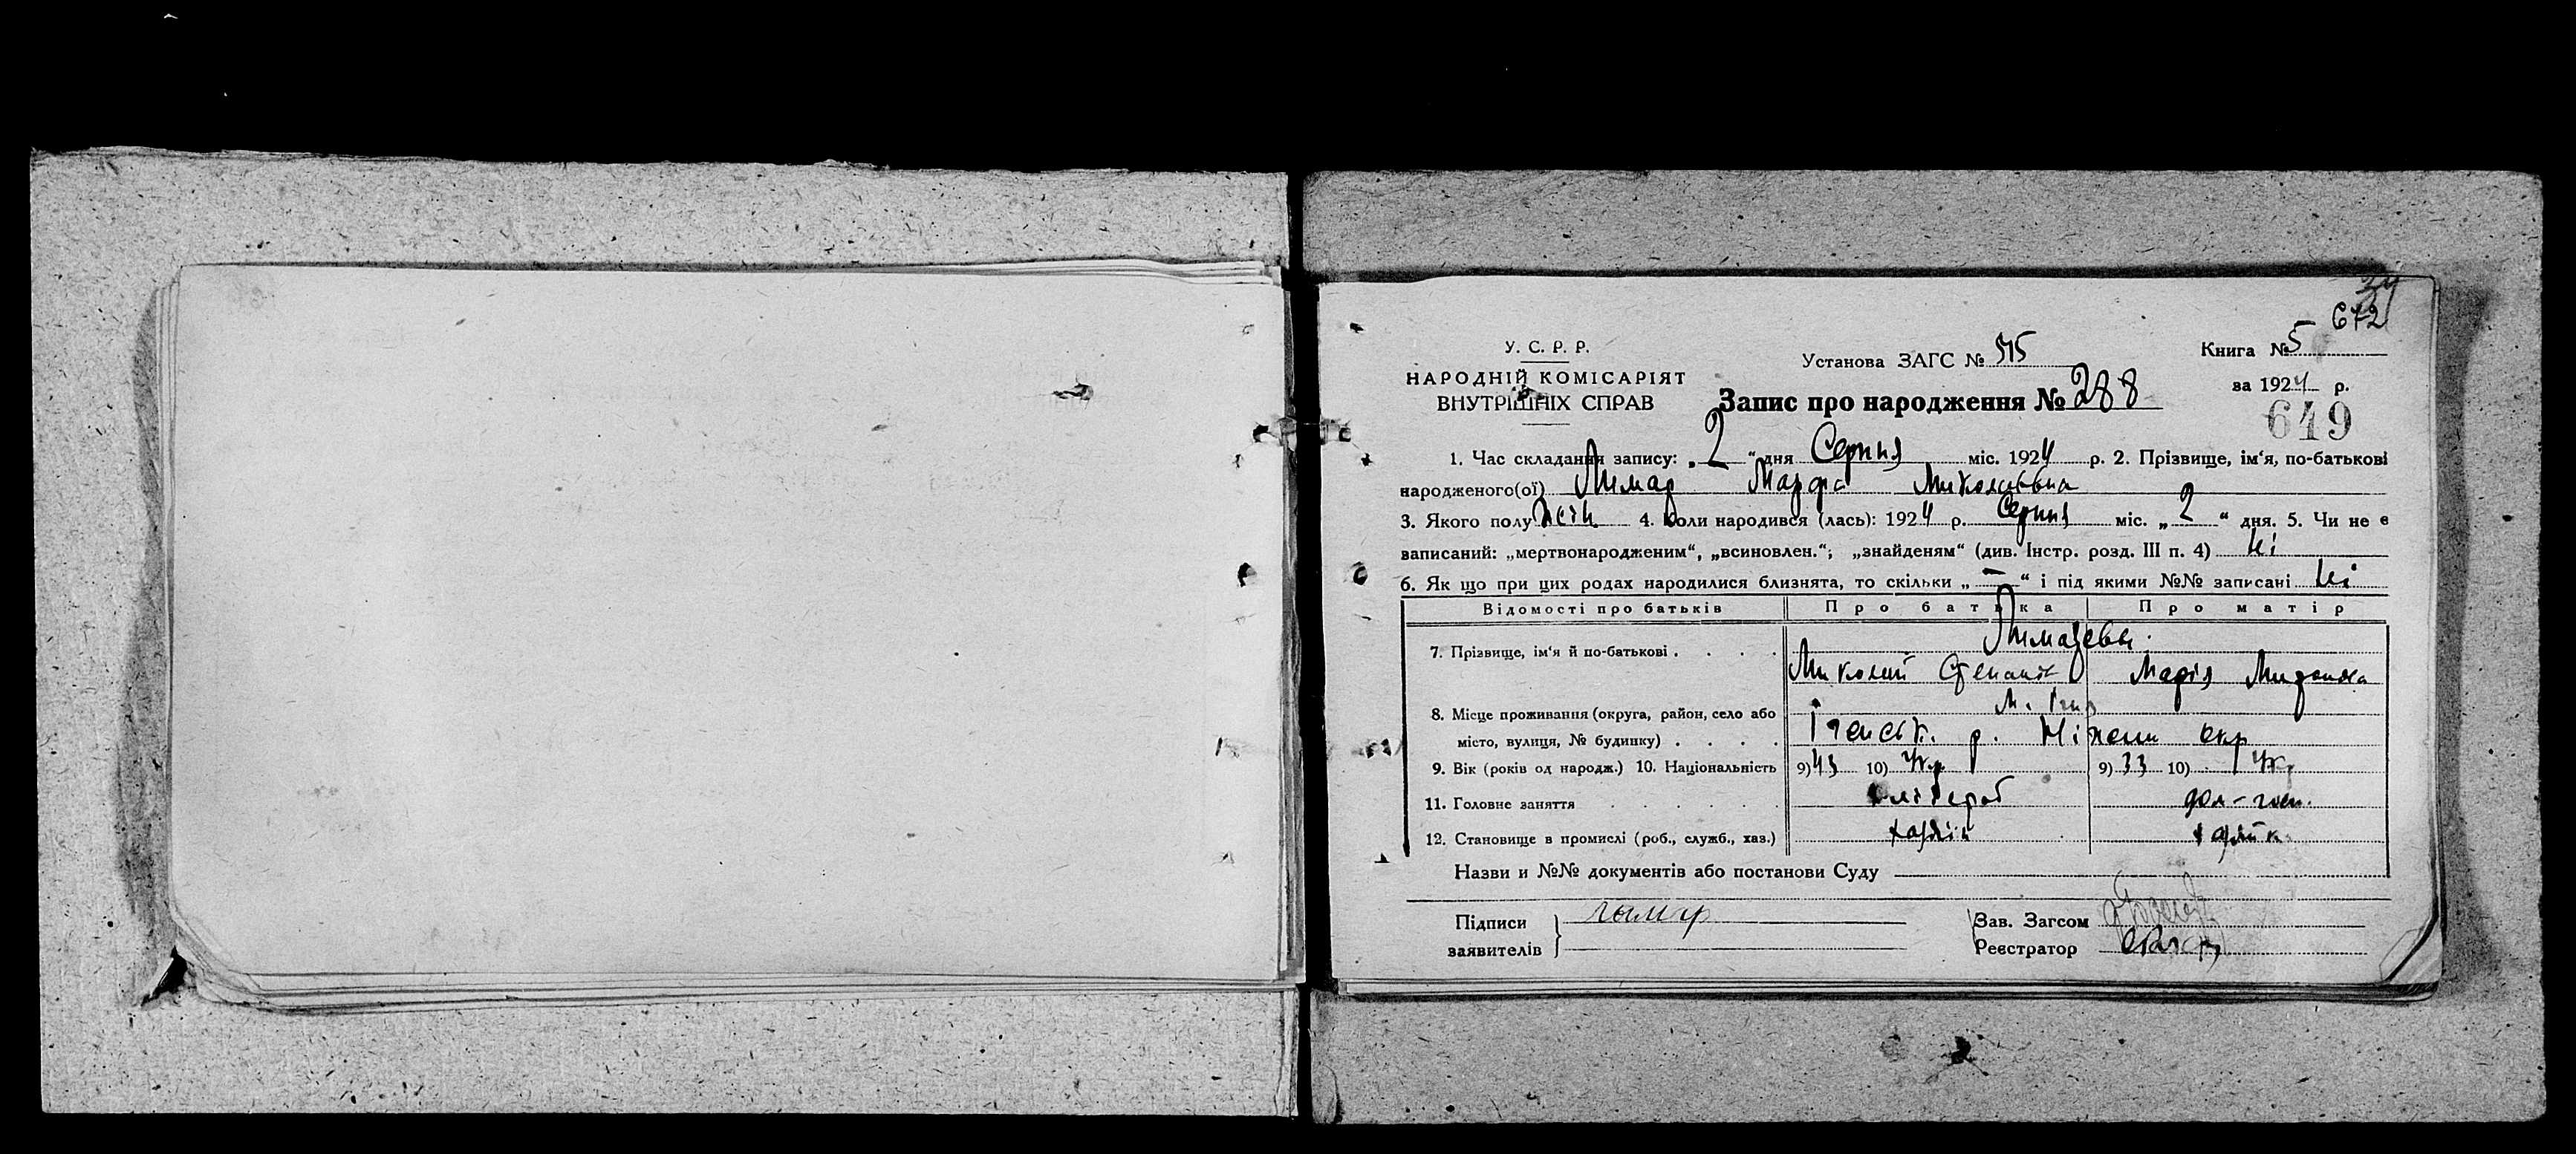 34
672
У. С. Р. Р.
НАРОДНІЙ КОМІСАРІЯТ
ВНУТРІШНІХ СПРАВ
Установа ЗАГС № 515
Запис про народження № 288
Книга № 5
за 1924 р.
649
1. Час складання запису: „2“ дня Серпня міс. 1924 р. 2. Прізвище, ім‘я, по-батькові
народженого(ої) Лимар Марфа Миколаївна
3. Якого полу жін 4. Коли народився (лась): 1924 р. Серпня міс. „2“ дня. 5. Чи не є
записаний: „мертвонародженим“, „всиновлен.“; „знайденям“ (див. Інстр. розд. III п. 4) Ні
6. Як що при цих родах народилися близнята, то скільки „—“ і під якими №№ записані Ні
Відомості про батьків Про батька Про матір
Лимареви
7. Прізвище, ім‘я й по-батькові . . . .
Миколай Степанов Марія
8. Місце проживання (округа, район, село або М. Ічня
місто, вулиця, № будинку) . . . . Іченськ. р. Ніжен окр
9. Вік (років од народж.) 10. Національність 9) 43 10) Укр 9) 33 10) Укр
11. Головне заняття . . . . . . хлібороб дом-госп.
12. Становище в промислі (роб., служб., хаз.) хазяїн
Назви и №№ документів або постанови Суду
Підписи Зав. Загсом
заявителів Реєстратор